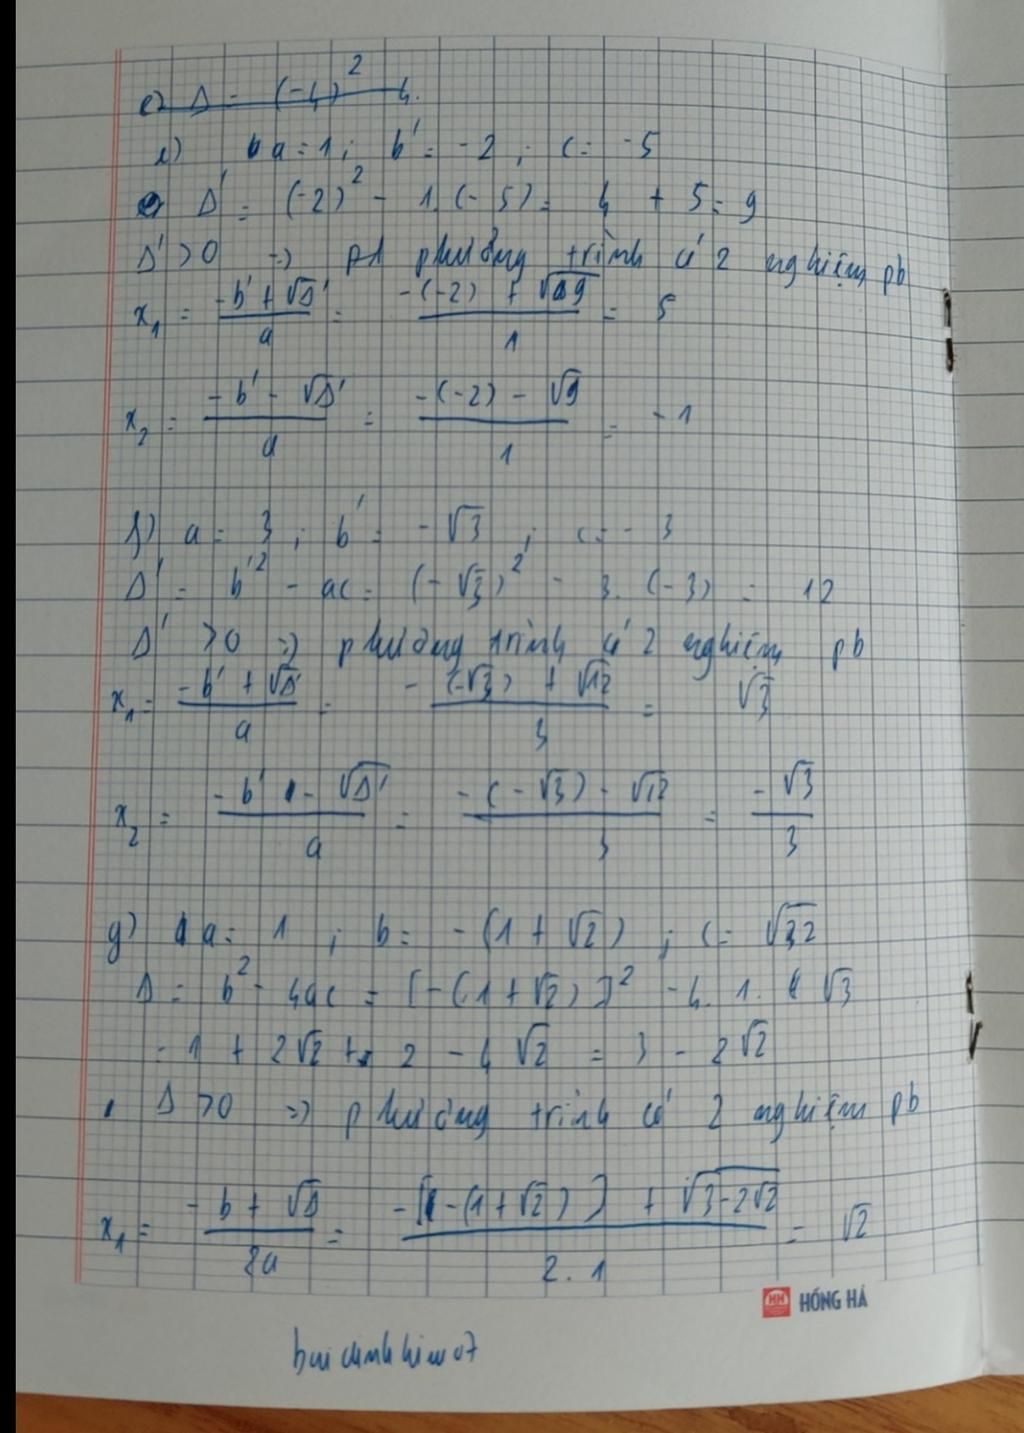 e) Δ = (-4)² - 4.
e) a = 1 ; b' = -2 ; c = -5
Δ' = (-2)² - 1.(-5) = 4 + 5 = 9
Δ' > 0 => pt phương trình có 2 nghiệm pb
x₁ = (-b' + √Δ')/a = (-(-2) + √9)/1 = 5
x₂ = (-b' - √Δ')/a = (-(-2) - √9)/1 = -1
f) a = 3 ; b' = -√3 ; c = -3
Δ' = b'² - ac = (-√3)² - 3.(-3) = 12
Δ' > 0 => phương trình có 2 nghiệm pb
x₁ = (-b' + √Δ')/a = (-(-√3) + √12)/3 = √3
x₂ = (-b' - √Δ')/a = (-(-√3) - √12)/3 = -√3/3
g) a = 1 ; b = -(1 + √2) ; c = √2
Δ = b² - 4ac = [-(1 + √2)]² - 4.1.√3
= 1 + 2√2 + 2 - 4√2 = 3 - 2√2
Δ > 0 => phương trình có 2 nghiệm pb
x₁ = (-b + √Δ)/2a = (-[-(1+√2)] + √(3-2√2))/2.1 = √2
HH HỒNG HÀ